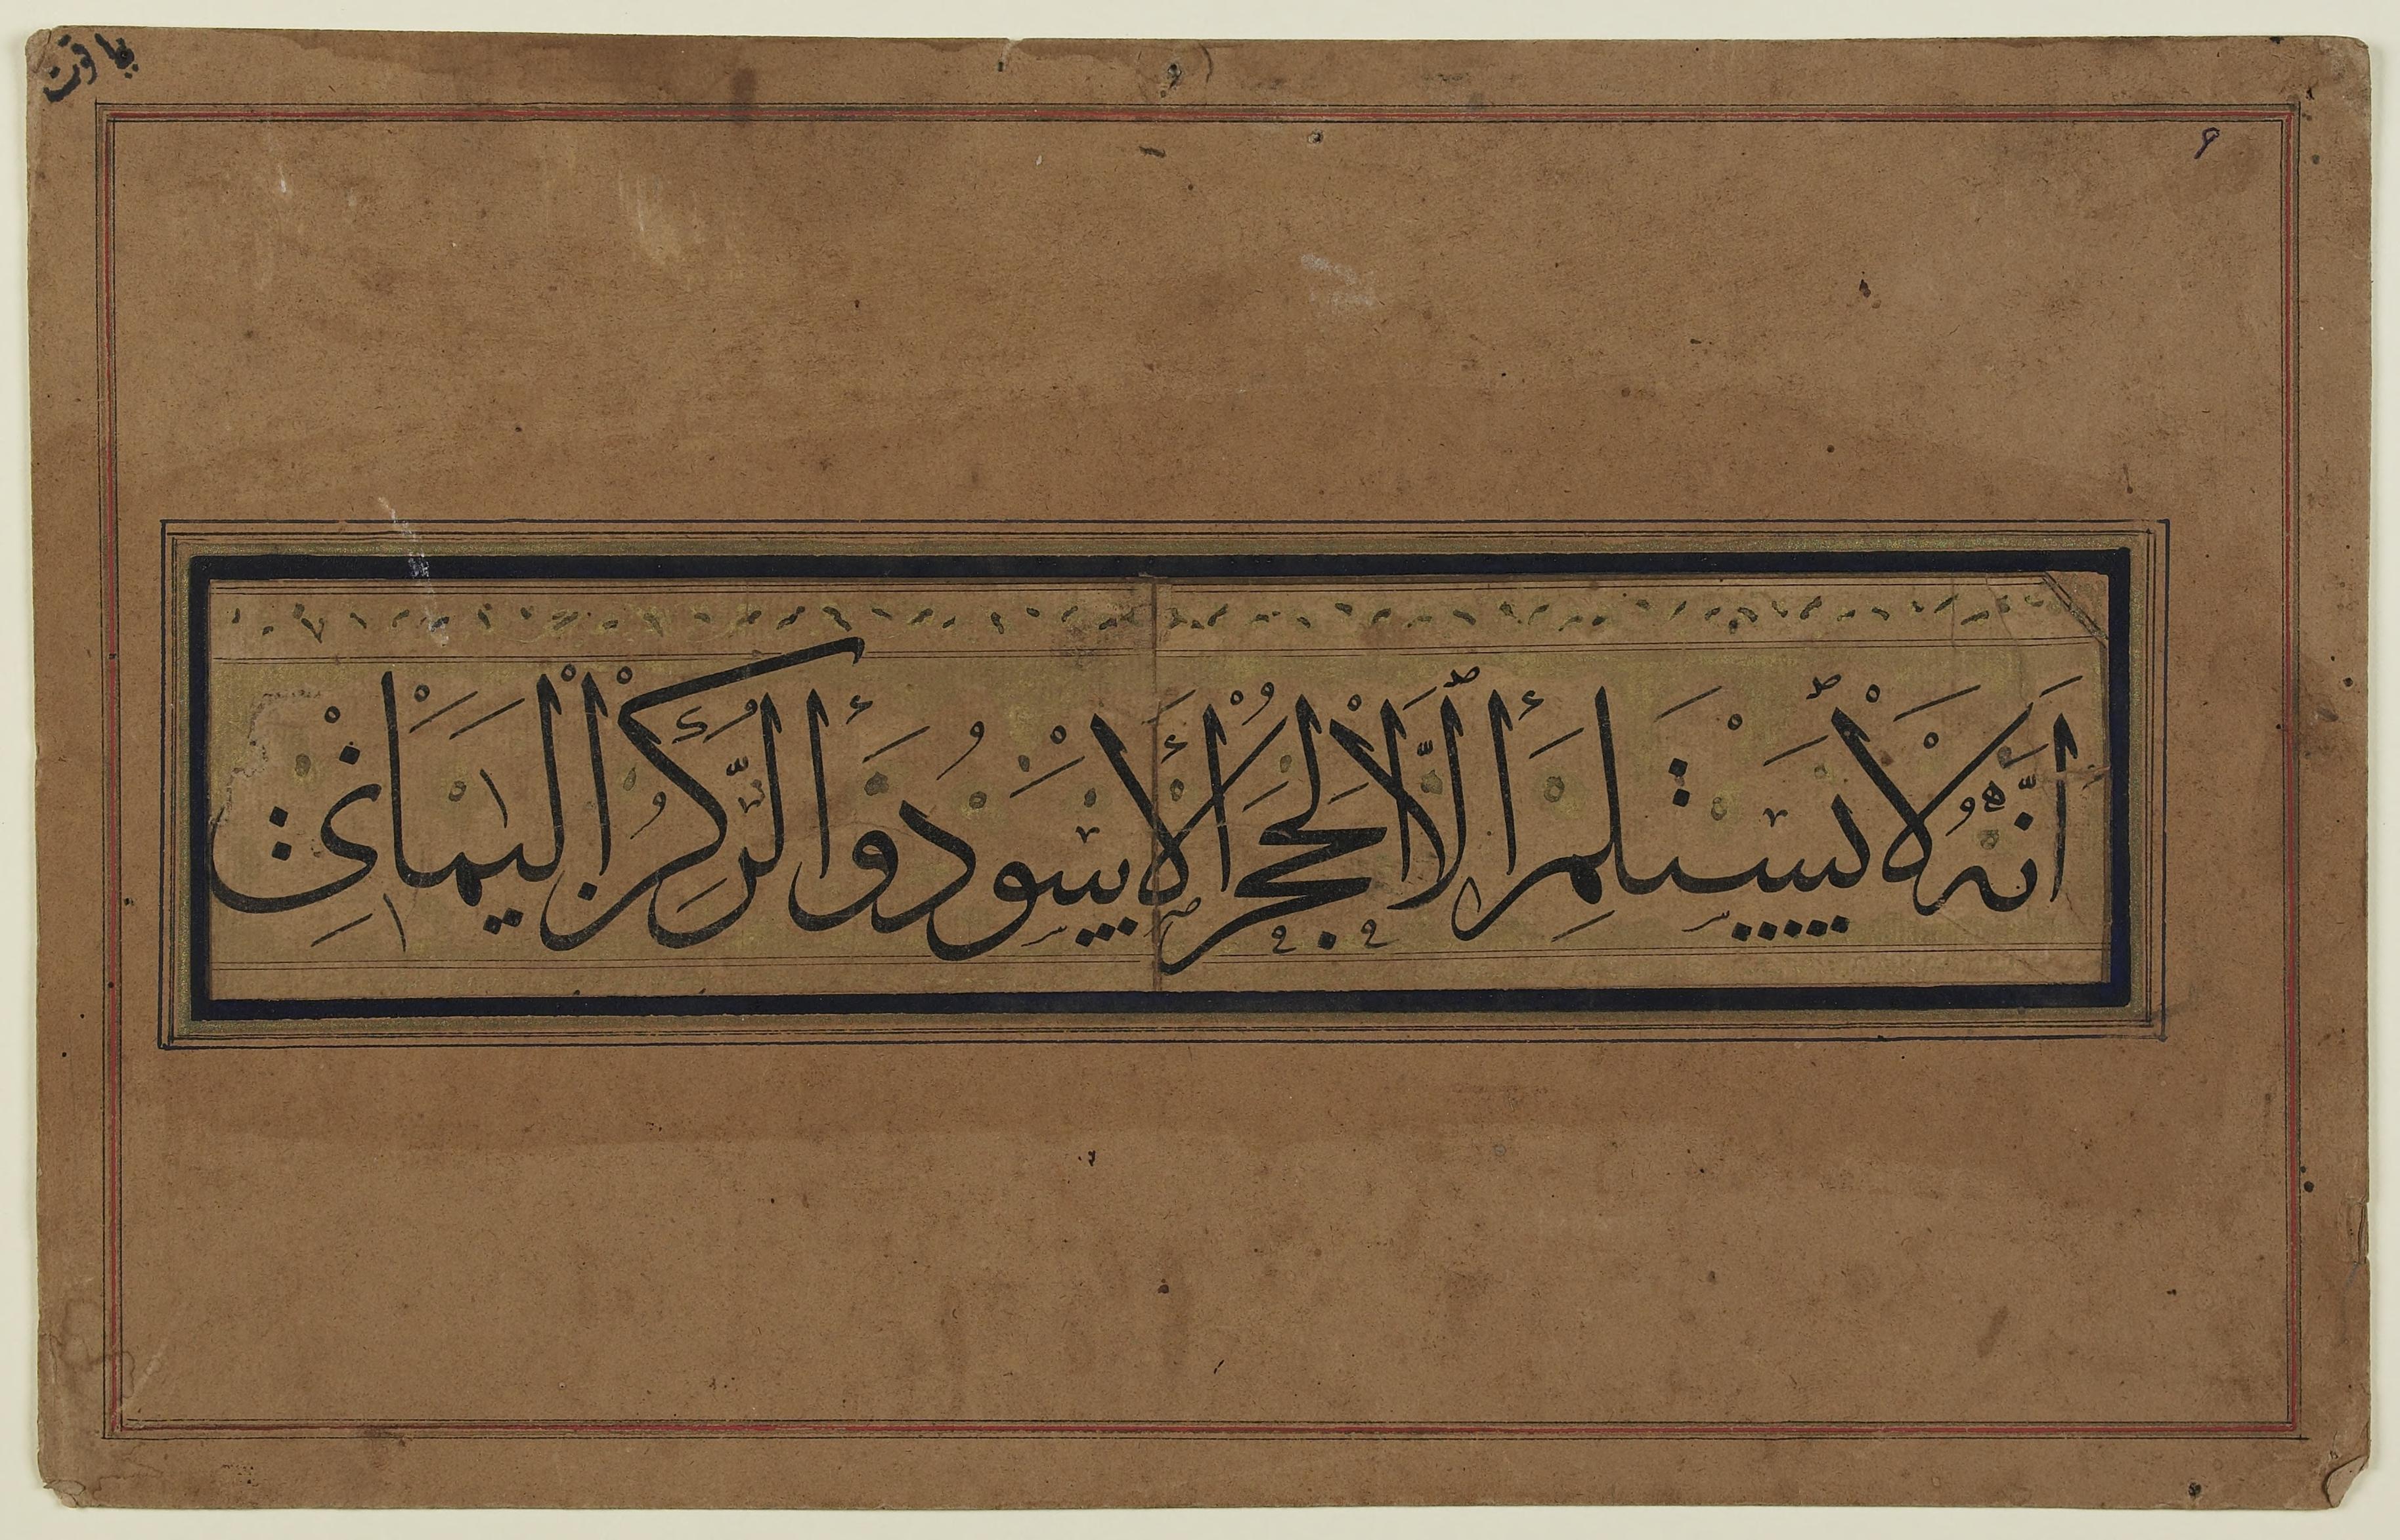 ياقوت
٩
اَنَّهُ لَا يَسْتَلِمِ أَلَّا الْحَجَرُ الْأَسْوَدُ وَأَلرُّكْنُ الْيَمَانِيْ